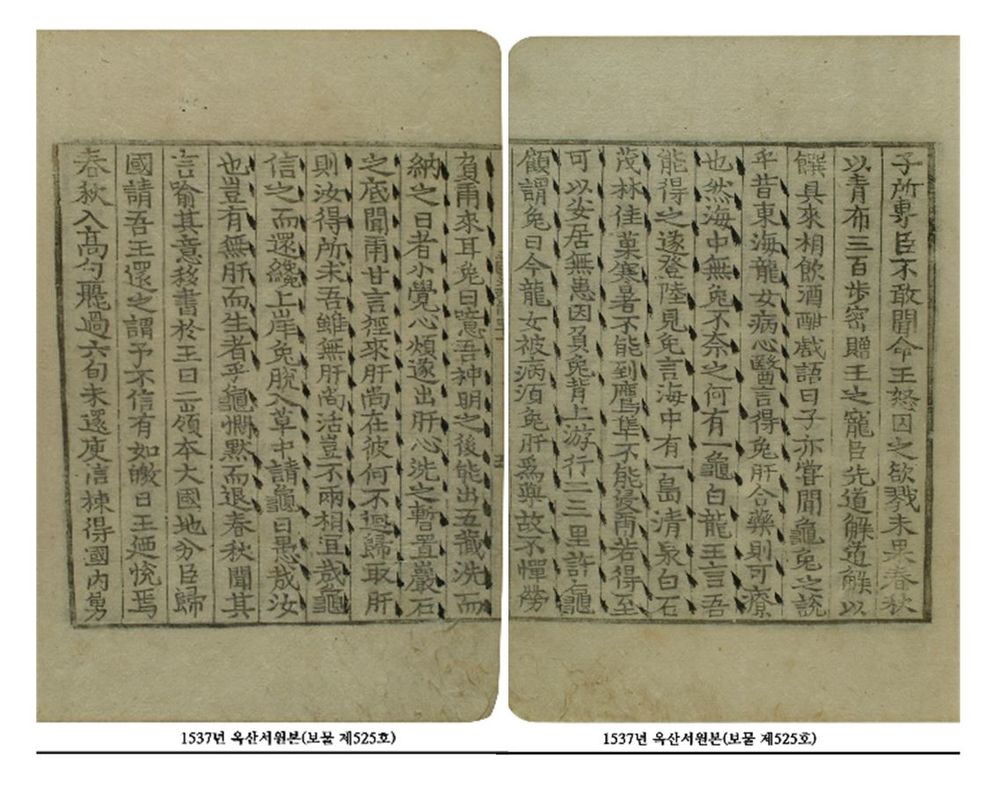 子所專臣不敢聞命王怒囚之欲戮未果春秋
以青布三百步密贈王之寵臣先道解道解以
饌具來相飮酒酣戱語曰子亦嘗聞龜兔之說
乎昔東海龍女病心醫言得兔肝合藥則可療
也然海中無兔不奈之何有一龜白龍王言吾
能得之遂登陸見兔言海中有一島清泉白石
茂林佳菓寒暑不能到鷹隼不能侵爾若得至
可以安居無患因負兔背上游行二三里許龜
顧謂兔曰今龍女被病須兔肝爲藥故不憚勞
負爾來耳兔曰噫吾神明之後能出五藏洗而
納之日者小覺心煩遂出肝心洗之暫置巖石
之底聞爾甘言徑來肝尚在彼何不廻歸取肝
則汝得所求吾雖無肝尚活豈不兩相宜哉龜
信之而還纔上岸兔脫入草中謂龜曰愚哉汝
也豈有無肝而生者乎龜憫默而退春秋聞其
言喻其意移書於王曰二嶺本大國地分臣歸
國請吾王還之謂予不信有如皦日王迺悅焉
春秋入高句麗過六旬未還庾信揀得國內勇
1537년 옥산서원본(보물 제525호)
1537년 옥산서원본(보물 제525호)